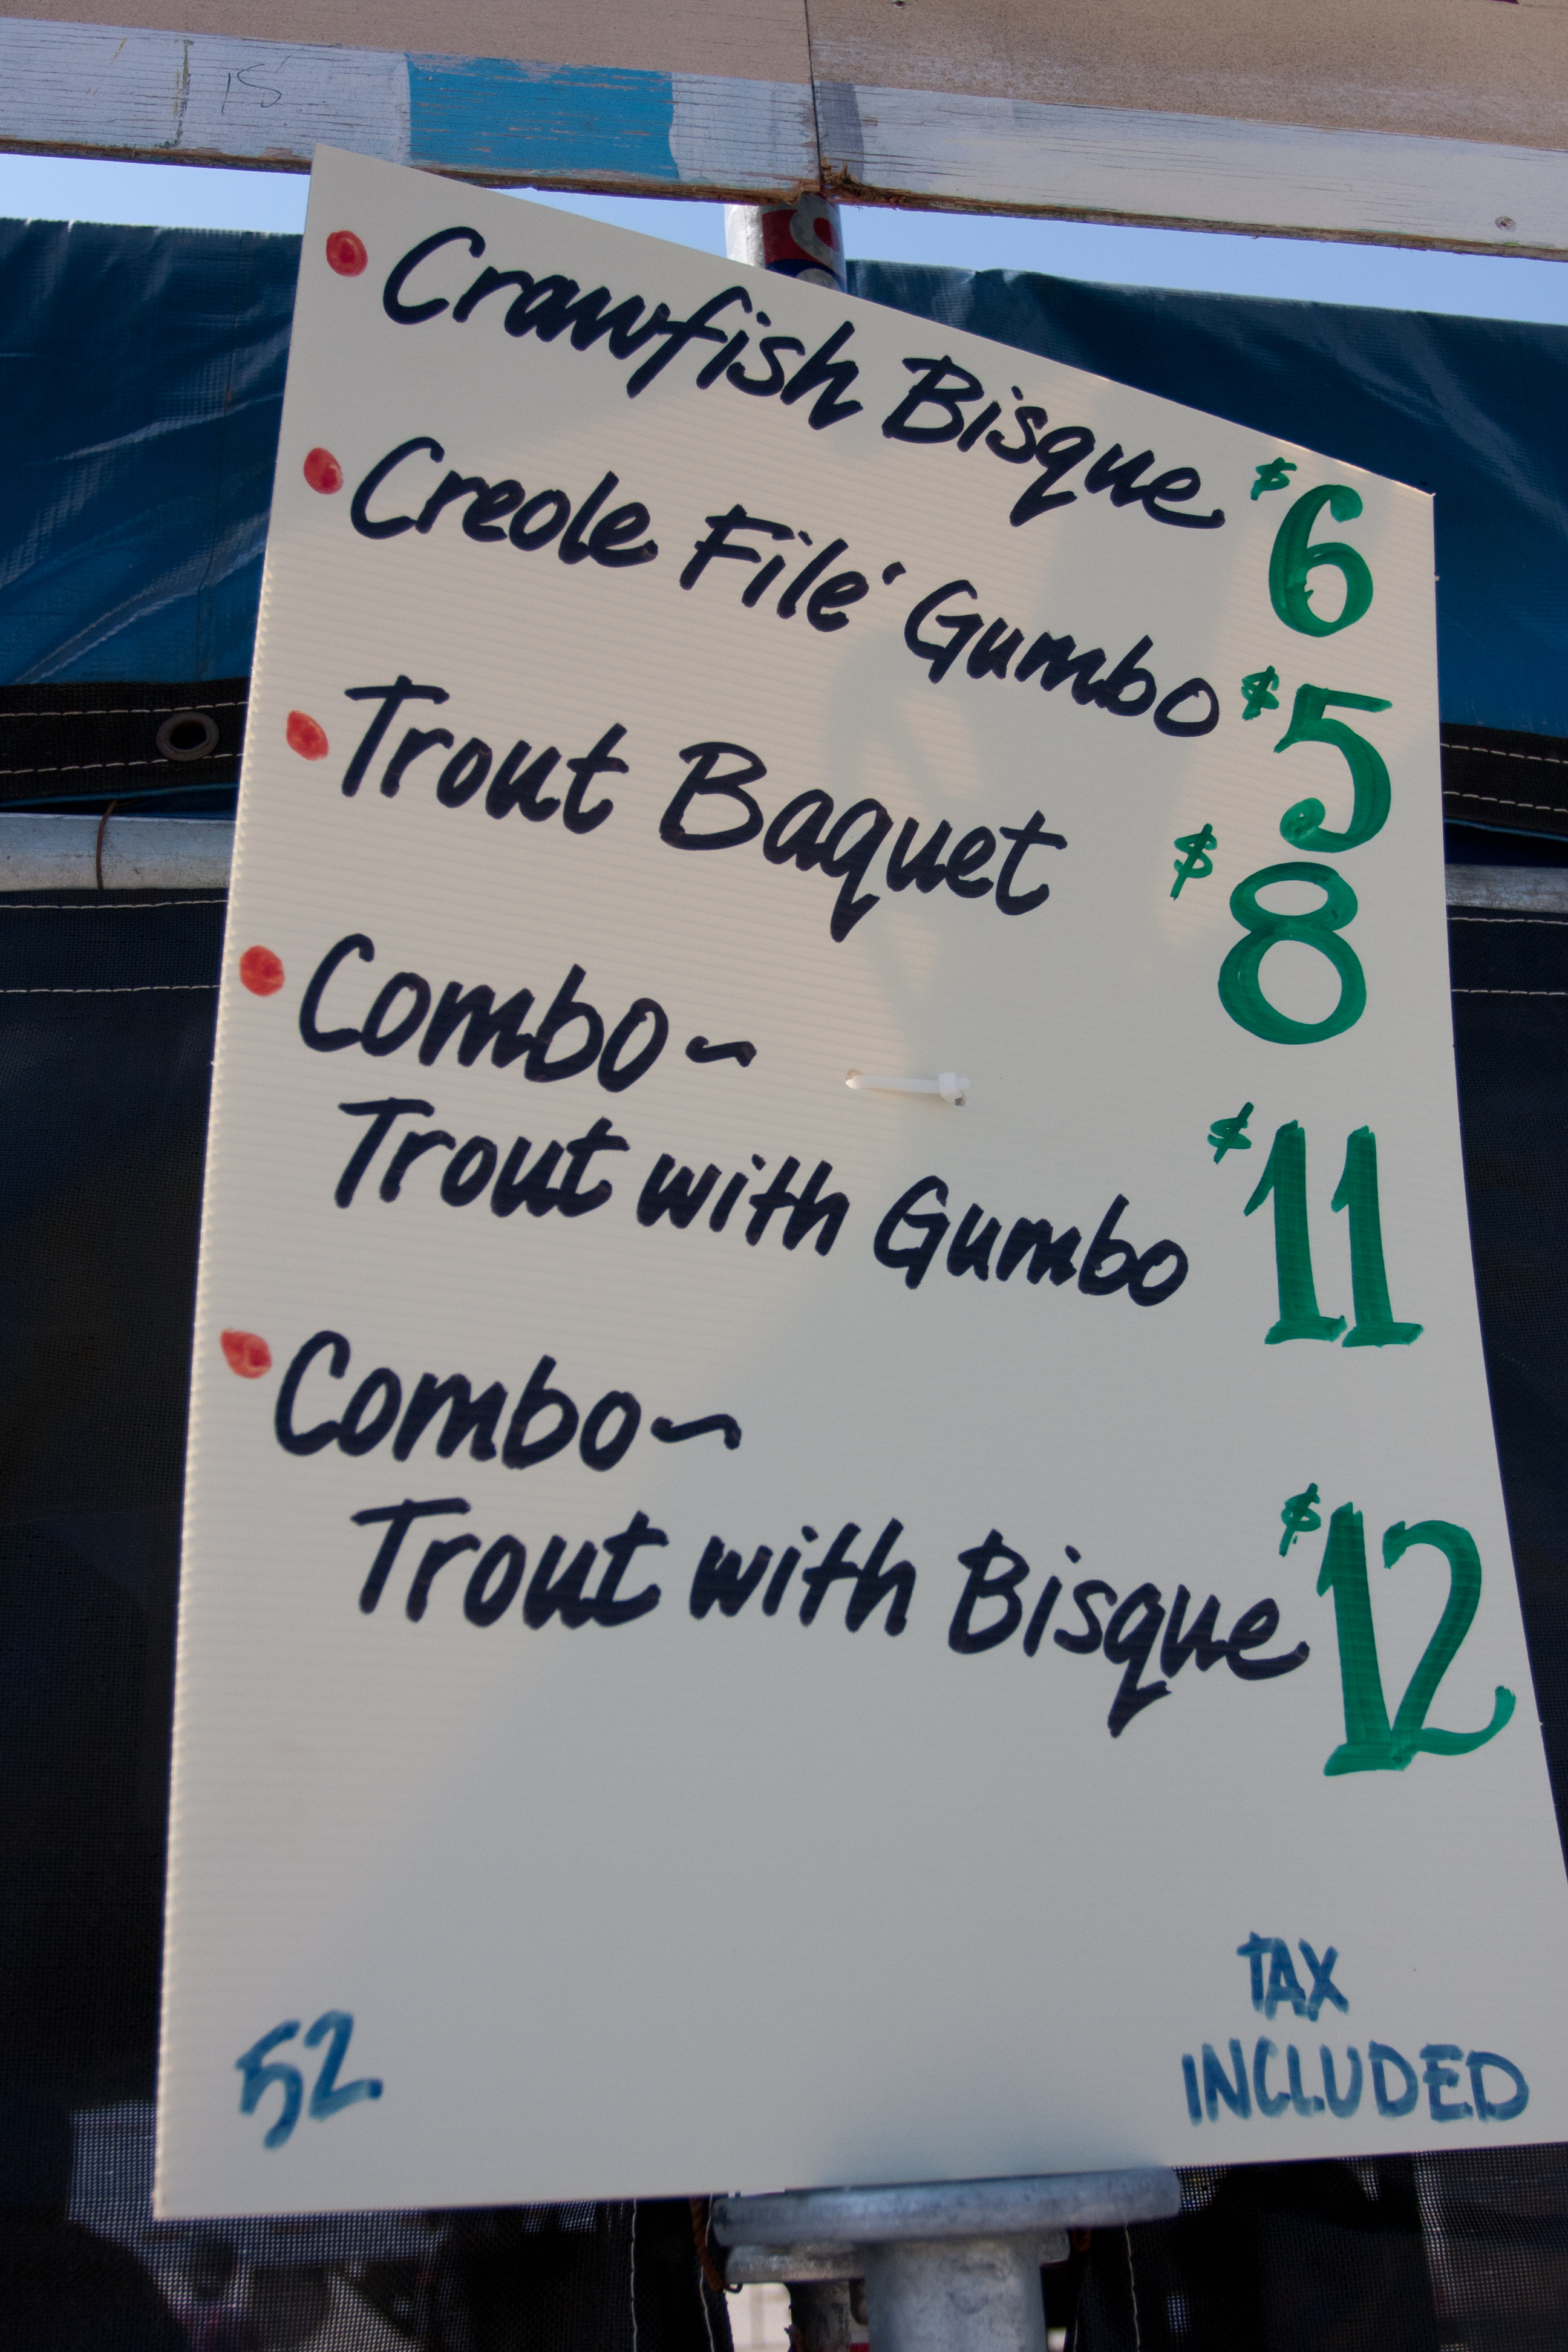 15
• Crawfish Bisque $6
• Creole Filé Gumbo $5
• Trout Baquet $8
• Combo~
Trout with Gumbo $11
• Combo~
Trout with Bisque $12
TAX
INCLUDED
52